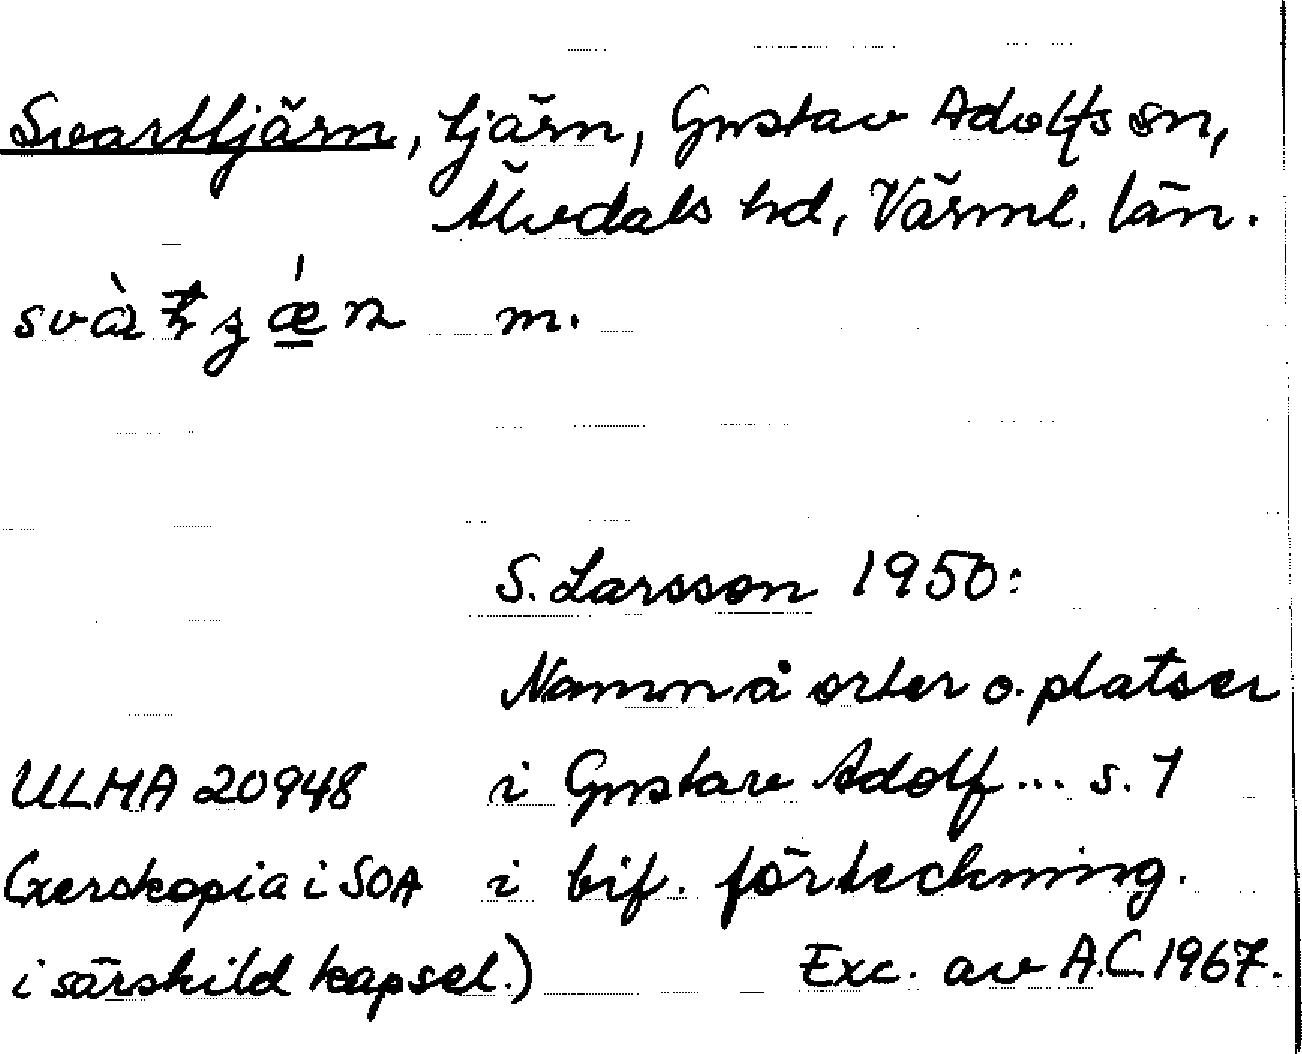 Svarttjärn, tjärn, Gustav Adolfs sn,
Älvdals hd, Värml. län.
m.
S. Larsson 1950:
Namn å orter o. platser
ULMA 20948 i Gustav Adolf ... s. 7
(xerokopia i SOA i bif. förteckning.
i särskild kapsel.) Exc. av A.C. 1967.